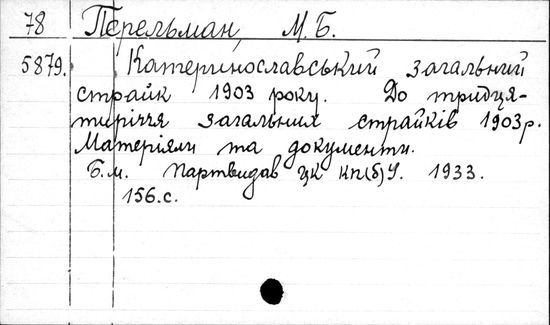 78 Перельман, М. Б.
5879. Катеринославський загальний
страйк 1903 року. До тридця-
тиріччя загальних страйків 1903 р.
Матеріяли та документи.
Б.м. Партвидав ЦК КП(б)У. 1933.
156.с.